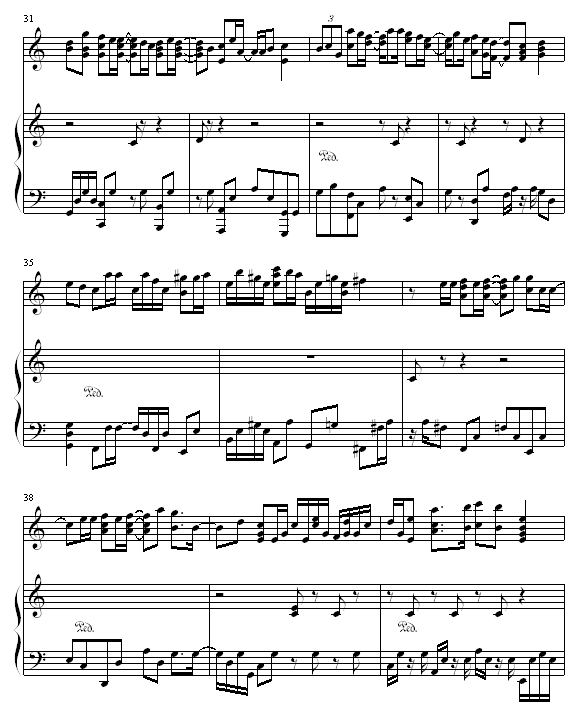 31
3
Ped.
35
Ped.
38
Ped.
Ped.